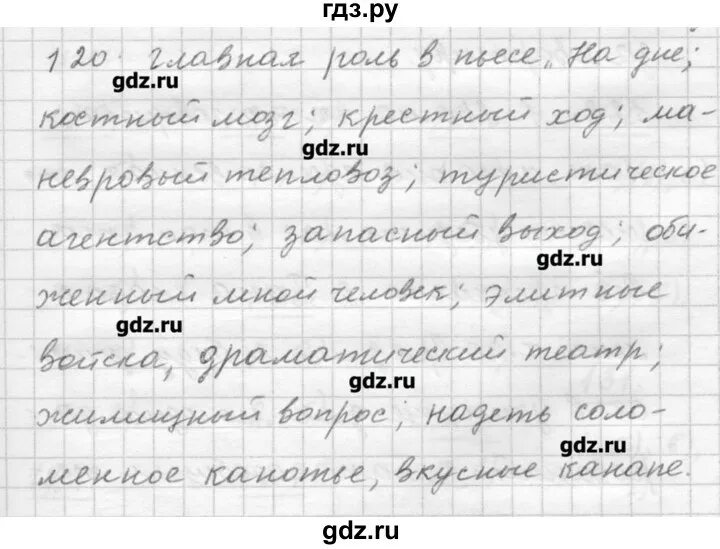 гдз.ру
120. главная роль в пьесе „На дне;
gdz.ru
костный мозг; крестный ход; ма-
gdz.ru
невровый тепловоз; туристическое
агентство; запасный выход; оби-
gdz.ru
женный мной человек; элитные
gdz.ru
войска, драматический театр;
gdz.ru
жилищный вопрос; надеть соло-
gdz.ru
менное канотье, вкусные канапе.
gdz.ru